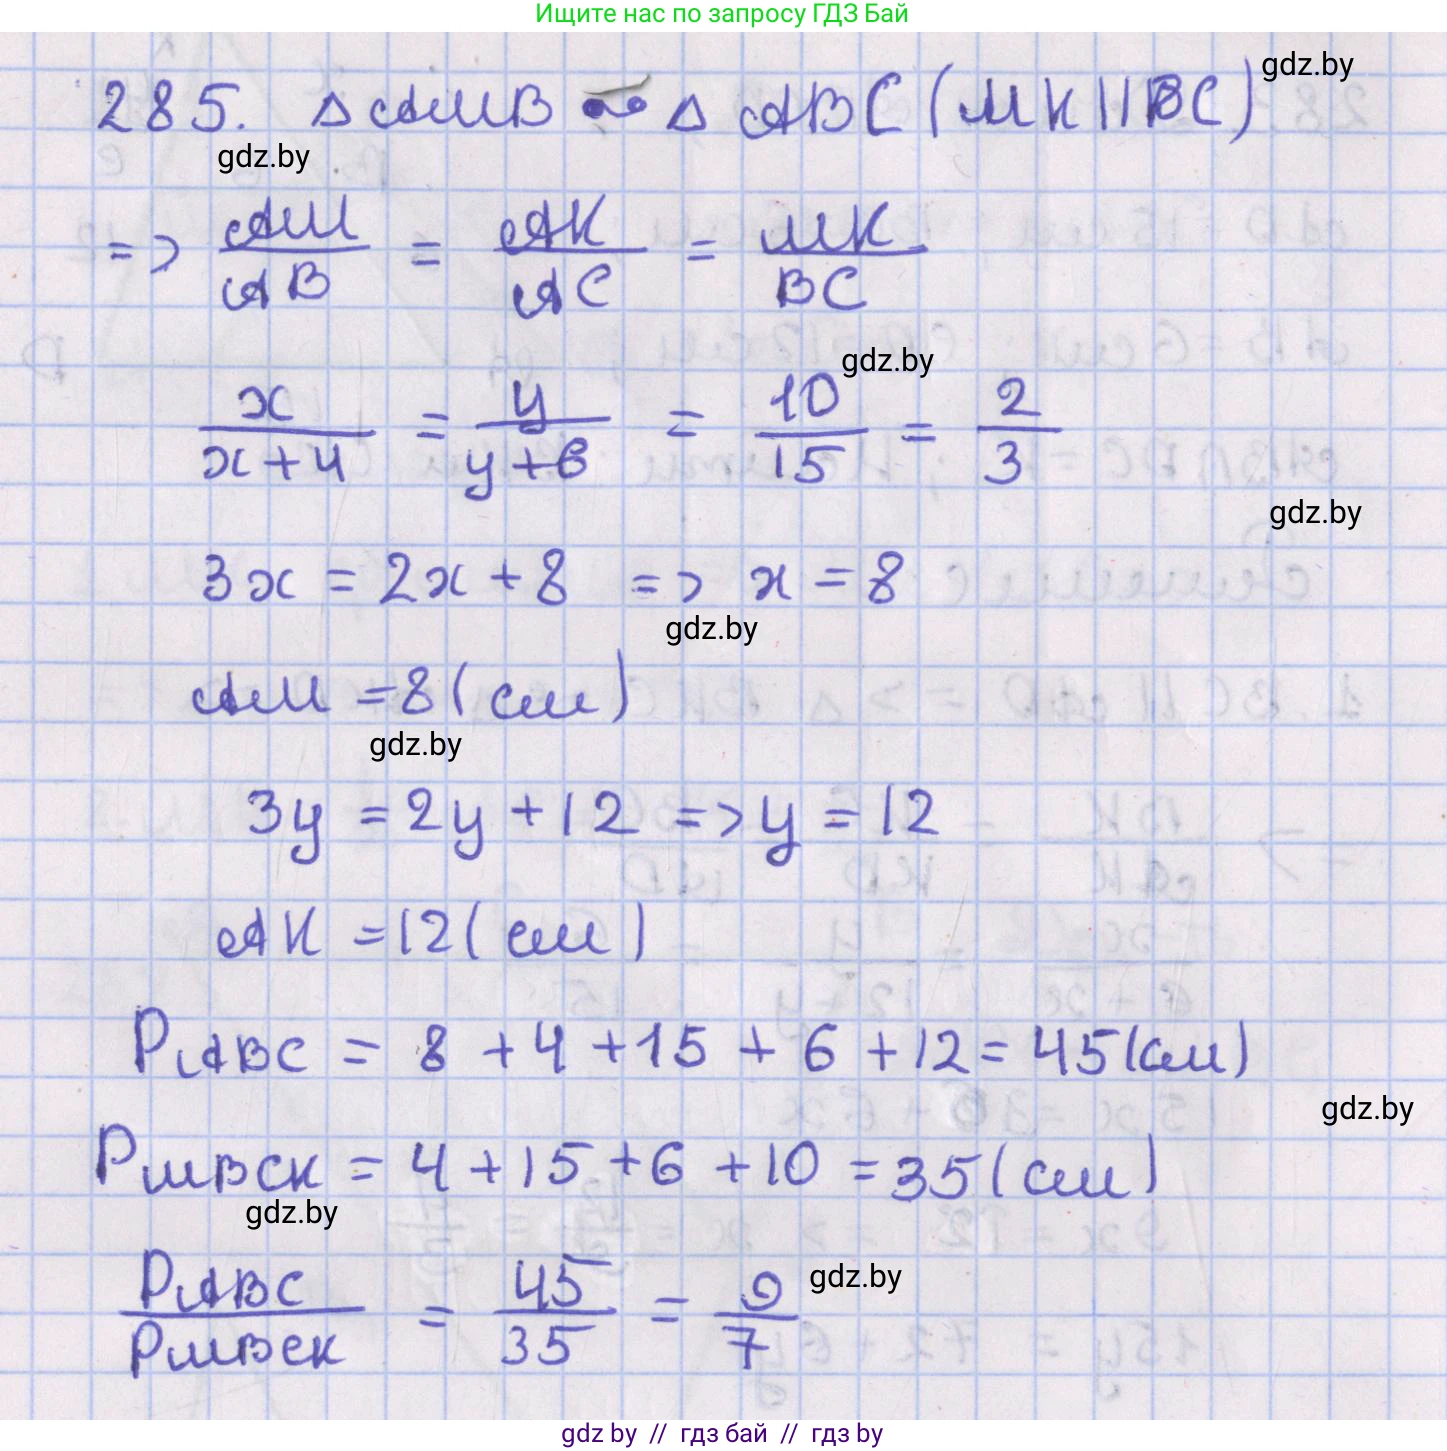 Ищите нас по запросу ГДЗ Бай
gdz.by
285. Δ AMB ~ Δ ABC (MK || BC)
gdz.by
=> AM/AB = AK/AC = MK/BC
gdz.by
x/(x+4) = y/(y+6) = 10/15 = 2/3
gdz.by
3x = 2x + 8 => x = 8
gdz.by
AM = 8 (см)
gdz.by
3y = 2y + 12 => y = 12
AK = 12 (см)
PABC = 8 + 4 + 15 + 6 + 12 = 45 (см)
gdz.by
PMBCK = 4 + 15 + 6 + 10 = 35 (см)
gdz.by
PABC/PMBCK = 45/35 = 9/7
gdz.by
gdz by // гдз бай // gdz by